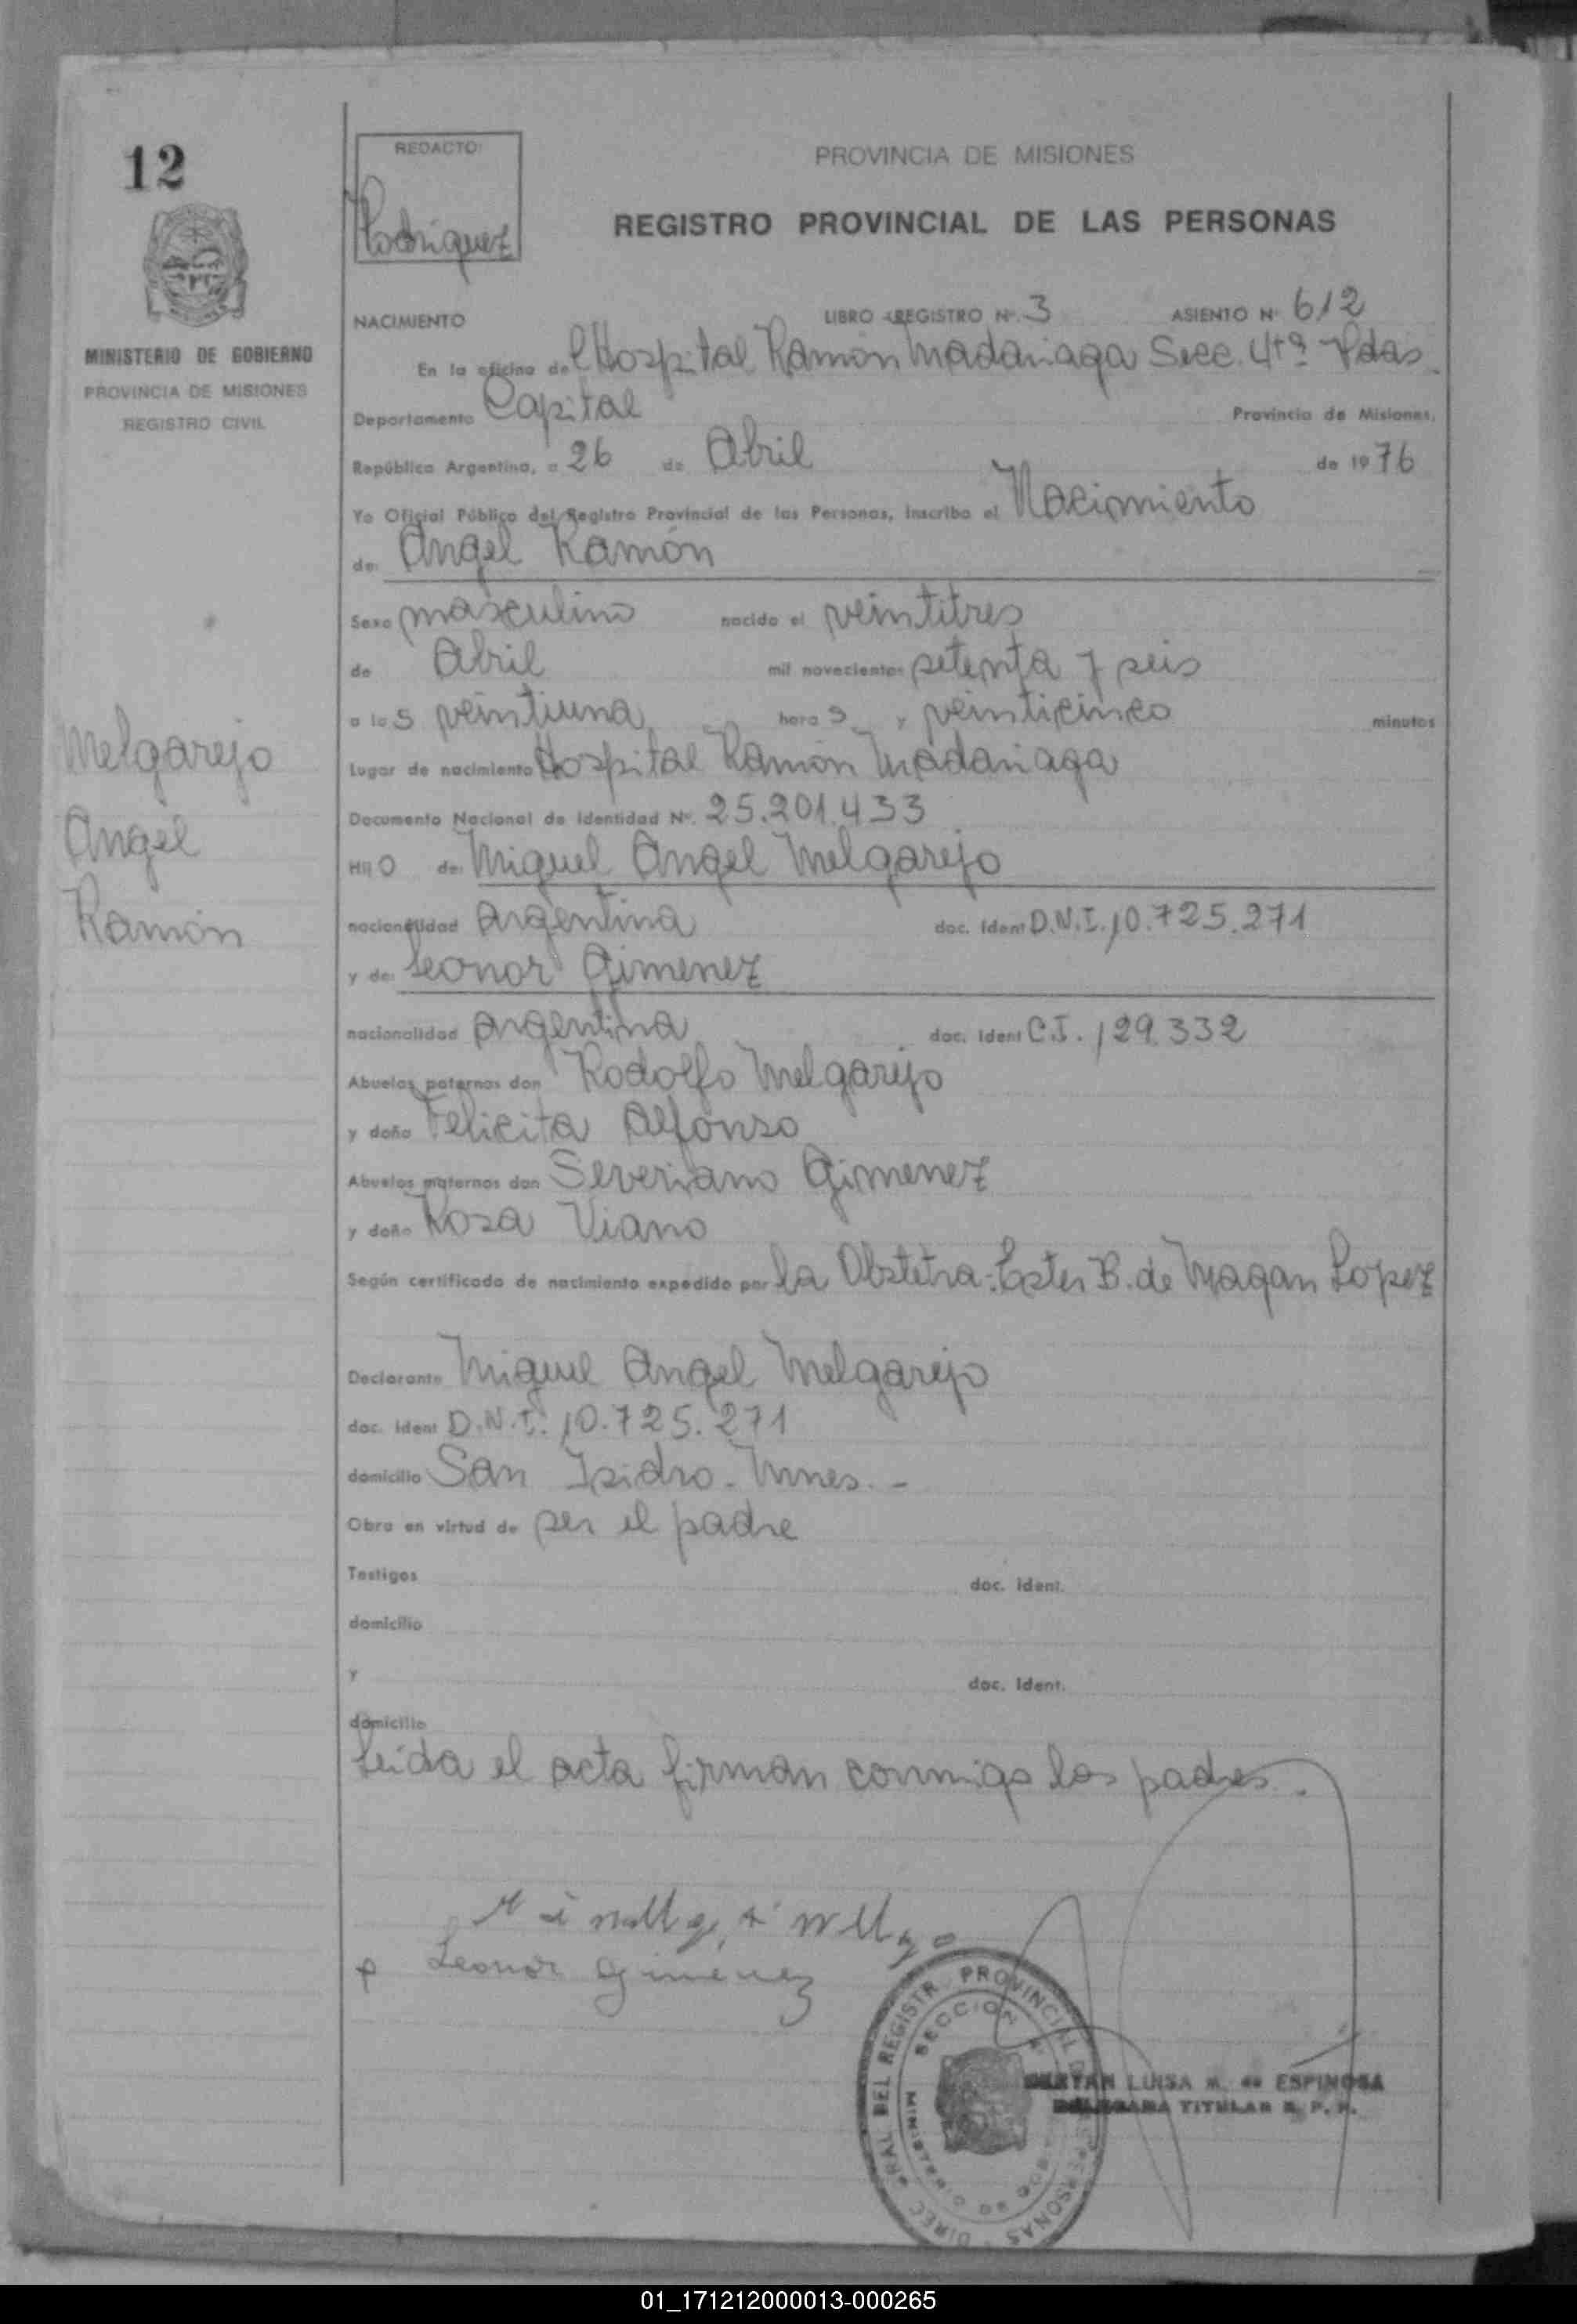 12
REDACTO:
Rodriguez
PROVINCIA DE MISIONES
REGISTRO PROVINCIAL DE LAS PERSONAS
MINISTERIO DE GOBIERNO
PROVINCIA DE MISIONES
REGISTRO CIVIL
NACIMIENTO LIBRO REGISTRO Nº. 3 ASIENTO Nº 612
En la oficina del Hospital Ramón Madariaga Secc. 4tª Pdas.
Departamento Capital Provincia de Misiones,
República Argentina, a 26 de Abril de 1976
Yo Oficial Público del Registro Provincial de las Personas, inscribo el Nacimiento
de: Angel Ramón
Sexo masculino nacido el veintitres
de Abril mil novecientos setenta y seis
a las veintiuna horas y veinticinco minutos
Lugar de nacimiento Hospital Ramón Madariaga
Documento Nacional de Identidad Nº. 25.201.433
Hijo de: Miguel Angel Melgarejo
nacionalidad Argentina doc. Ident D.N.I. 10.725.271
y de: Leonor Gimenez
nacionalidad Argentina doc. Ident C.I. 129.332
Abuelos paternos don Rodolfo Melgarejo
y doña Felicita Alfonso
Abuelos maternos don Severiano Gimenez
y doña Rosa Viano
Según certificado de nacimiento expedido por la Obstetra: Ester B. de Magan Lopez
Melgarejo
Angel
Ramón
Declarante Miguel Angel Melgarejo
doc. Ident D.N.I. 10.725.271
domicilio San Isidro - Mnes. -
Obra en virtud de ser el padre
Testigos doc. Ident.
domicilio
y doc. Ident.
domicilio
Leida el acta firman conmigo los padres.
Leonor Gimenez
DIREC GRAL DEL REGISTR PROVINCIAL DE PERSONAS
SECCION
MINISTERIO DE GOB
LUISA M. de ESPINOSA
TITULAR R. P. P.
01_171212000013-000265